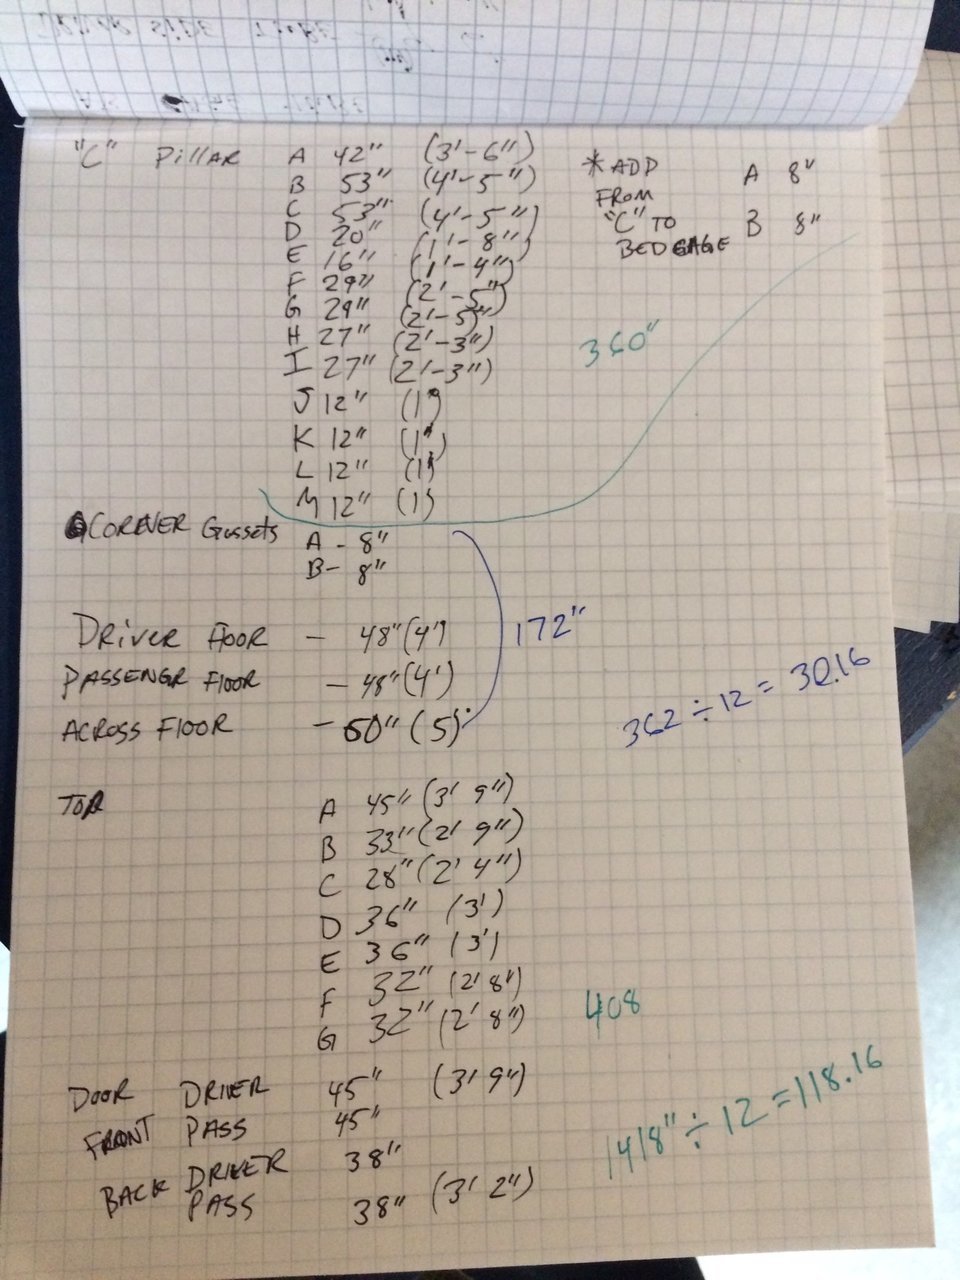 "C" PILLAR A 42" (3'-6")
B 53" (4'-5")
C 53" (4'-5")
D 20" (1'-8")
E 16" (1'-4")
F 29" (2'-5")
G 29" (2'-5)"
H 27" (2'-3")
I 27" (2'-3")
J 12" (1')
K 12" (1')
L 12" (1')
M 12" (1')
*ADD A 8"
FROM
"C" TO B 8"
BED CAGE
360"
CORNER Gussets A - 8"
B - 8"
DRIVER FLOOR - 48" (4')
PASSENGR FLOOR - 48" (4')
ACROSS FLOOR - 60" (5)'
172"
362 ÷ 12 = 30.16
TOP A 45" (3' 9")
B 33" (2' 9")
C 28" (2' 4")
D 36" (3')
E 36" (3')
F 32" (2' 8")
G 32" (2' 8")
408
DOOR DRIVER 45" (3' 9")
FRONT PASS 45"
BACK DRIVER 38"
PASS 38" (3' 2")
1418" ÷ 12 = 118.16